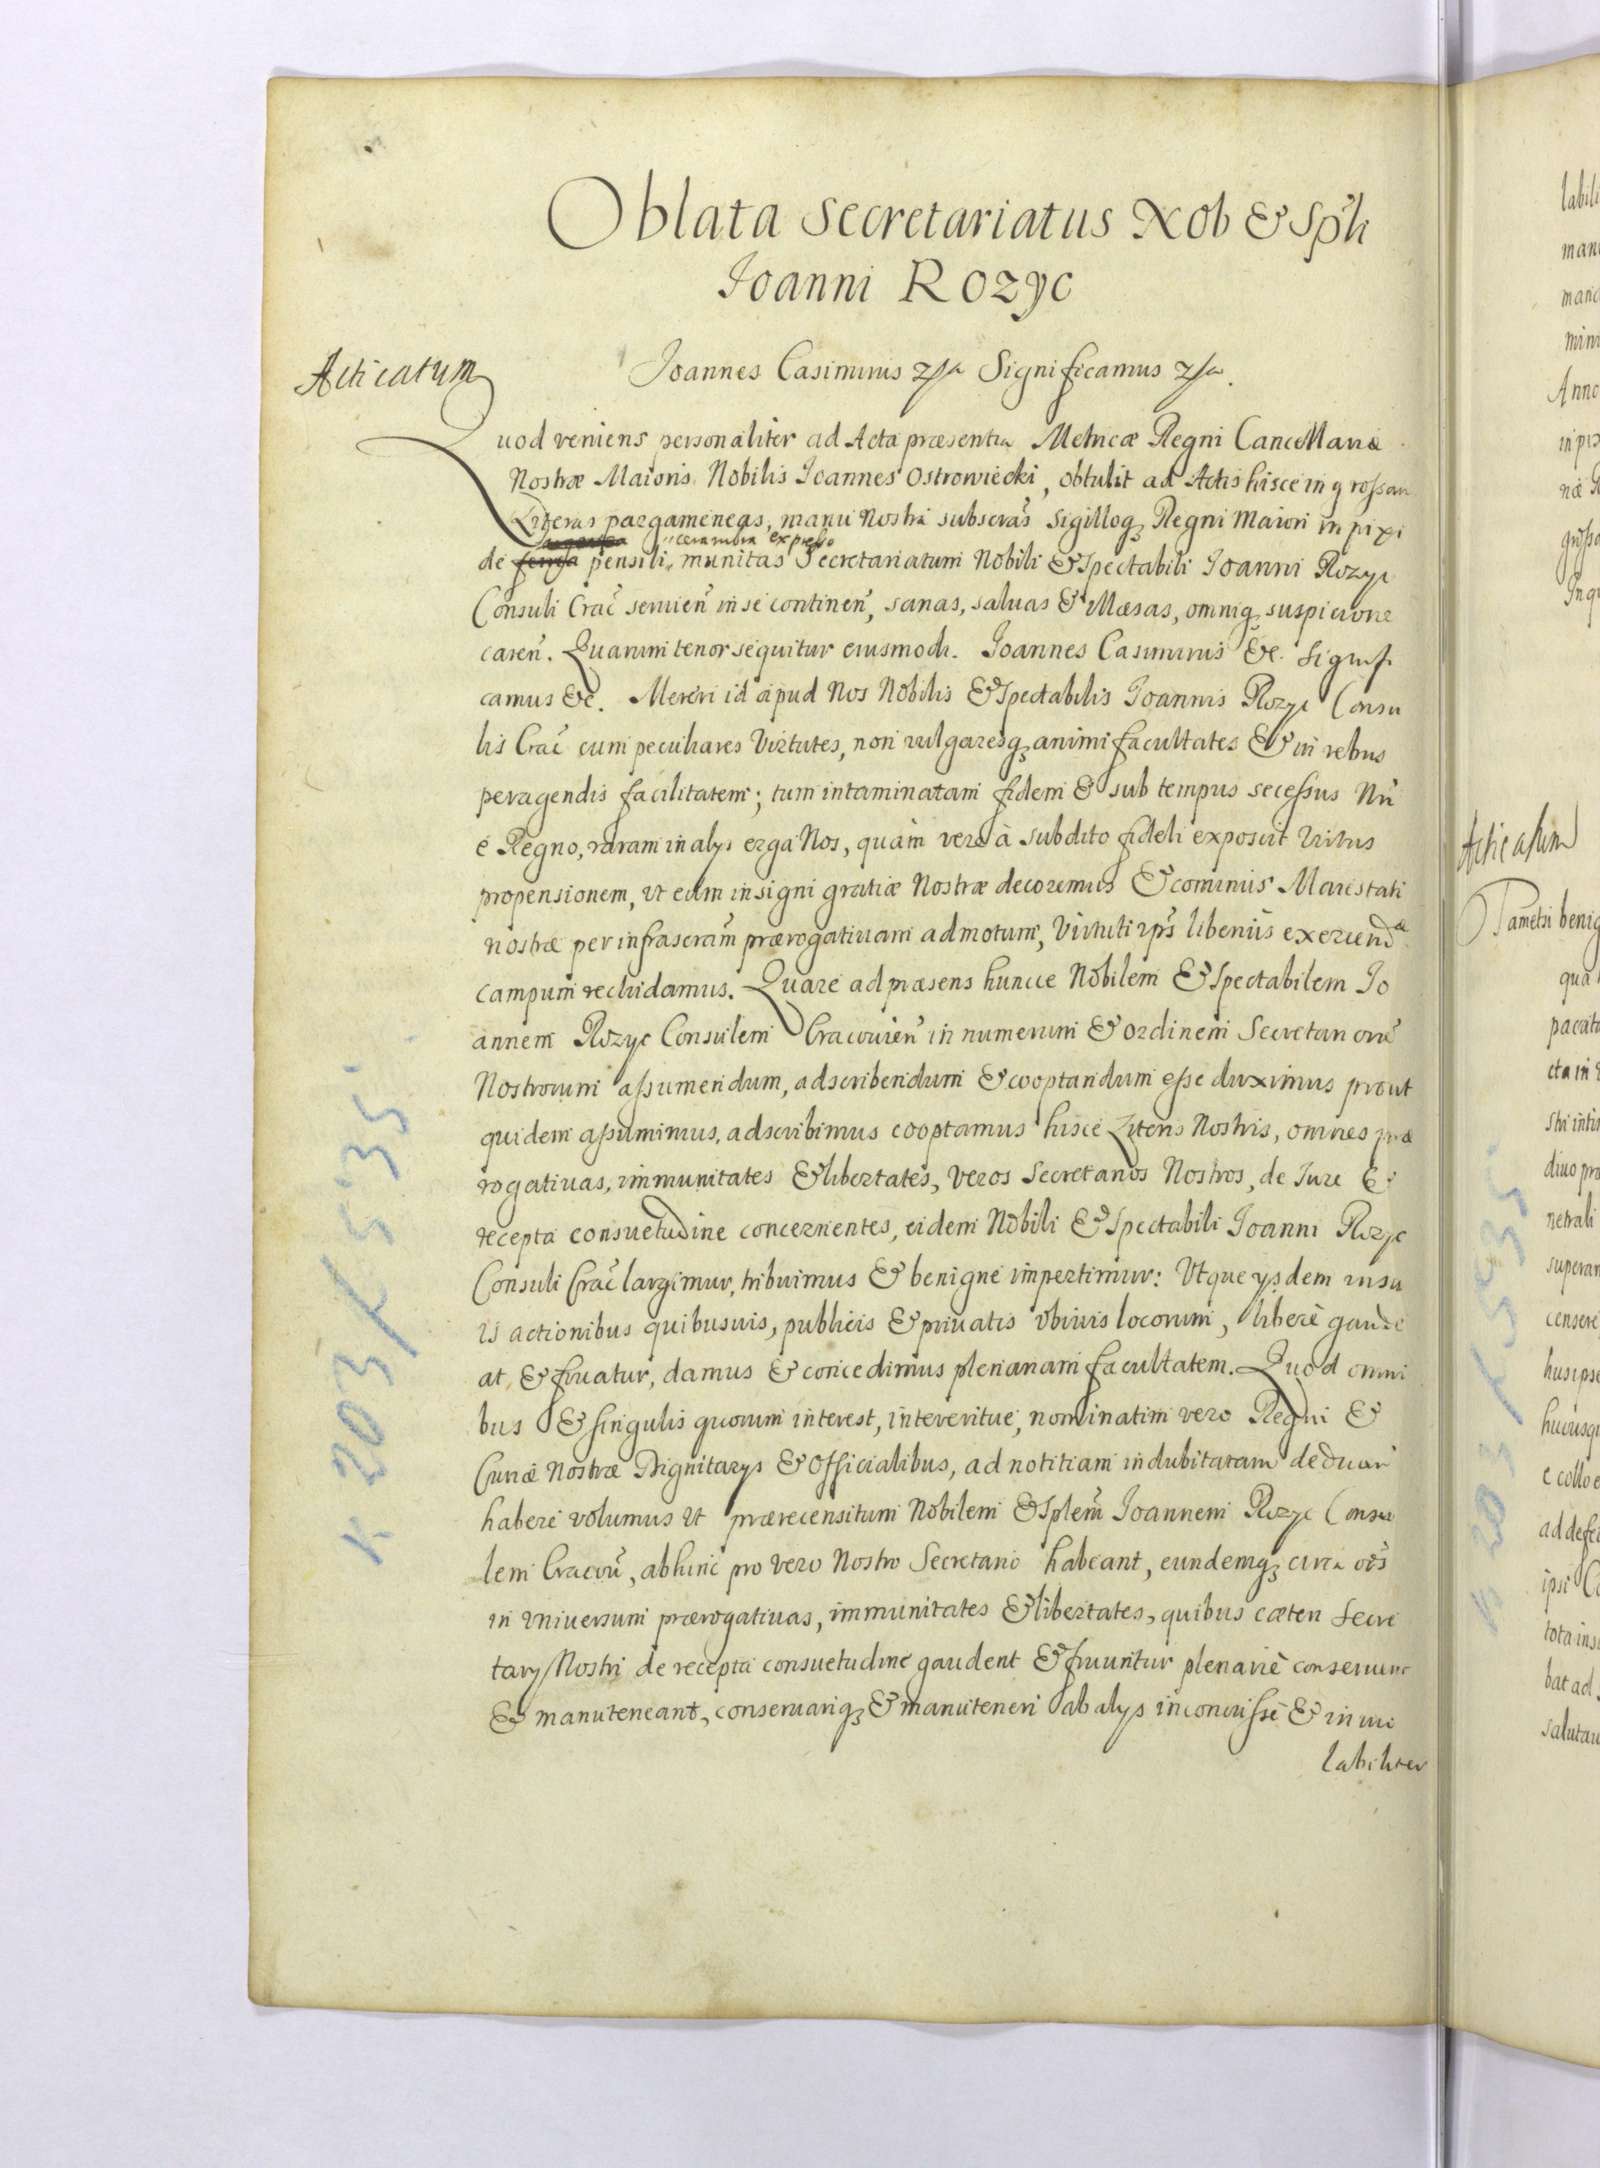 Oblata Secretariatus Nob & Spli
Joanni Rozyc
Acticatum
Joannes Casimirus &c Significamus &c.
Quod veniens personaliter ad Acta præsentia Metricæ Regni Cancellariæ
Nostræ Maioris Nobilis Joannes Ostrowiecki, obtulit ad Actis hisce ingrossan
Literas pargameneas, manu Nostra subscras Sigilloq Regni Maiori in pixi
cera rubra expresso
de pensili, munitas Secretariatum Nobili & Spectabili Joanni Rozyc
Consuli Crac servien in se continen, sanas, saluas & illæsas, omniq suspicione
caren. Quarum tenor sequitur eiusmodi. Joannes Casimirus &c. Signifi
camus &c. Mereri id apud Nos Nobilis & Spectabilis Joannis Rozyc Consu
lis Crac cum peculiares Virtutes, non vulgaresq animi facultates & in rebus
peragendis facilitatem; tum intaminatam fidem & sub tempus secessus Nri
é Regno, raram in alys erga Nos, quam vero à subdito fideli exposcit Virtus
propensionem, vt eum insigni gratiæ Nostræ decoremus & cominus Maiestati
nostræ per infrascram prærogatiuam admotum, Virtuti ips liberius exerendæ
campum recludamus. Quare ad præsens huncce Nobilem & Spectabilem Jo
annem Rozyc Consulem Cracouien in numerum & ordinem Secretariorū
Nostrorum assumendum, adscribendum & cooptandum esse duximus prout
quidem assumimus, adscribimus cooptamus hisce Literis Nostris, omnes præ
rogatiuas, immunitates & libertates, veros Secretarios Nostros, de Jure &
recepta consuetudine concernentes, eidem Nobili & Spectabili Joanni Rozyc
Consuli Crac largimur, tribuimus & benigne impertimur: Vtque ysdem in su
is actionibus quibusuis, publicis & priuatis vbiuis locorum, libere gaude
at, & fruatur, damus & concedimus plenariam facultatem. Quod omni
bus & singulis quorum interest, intereritue, nominatim vero Regni &
Curiæ Nostræ Dignitarys & Officialibus, ad notitiam indubitatam deduci
habere volumus vt prærecensitum Nobilem & Splem Joannem Rozyc Consu
lem Cracou, abhinc pro vero Nostro Secretario habeant, eundemq circa oēs
in vniuersum prærogatiuas, immunitates & libertates, quibus cæteri Secre
tary Nostri de recepta consuetudine gaudent & fruuntur plenarie conseruent
& manuteneant, conseruariq & manuteneri ab alys inconcusse & inuio
labiliter
K 203 f 535
labili
Anno
Acticatum
Tametsi benig
qua
pacato
diuo pro
superan
censere
hus ipse
hucusqu
e collo e
ad defe
ipsi Co
tota ins
bat ad
salutau
K 203 f 535